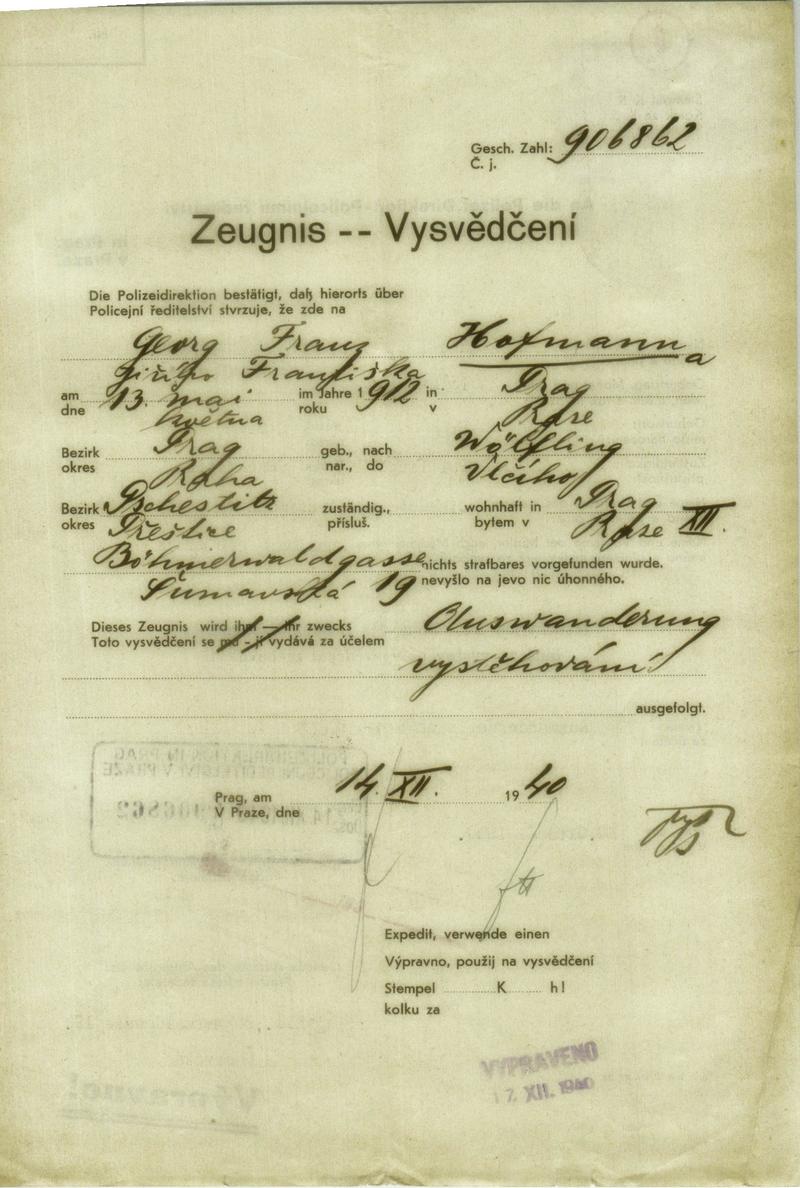 Gesch. Zahl: 906862
Č. j.
Zeugnis -- Vysvědčení
Die Polizeidirektion bestätigt, daß hierorts über
Policejní ředitelství stvrzuje, že zde na
Georg Franz Hofmann a
Jiřího Františka
am 13. mai im Jahre 1912 in Prag
dne května roku v Praze
Bezirk Prag geb., nach Wölfling
okres Praha nar., do Vlčího
Bezirk Pschestitz zuständig., wohnhaft in Prag
okres Přeštice přísluš. bytem v Praze XII.
Böhmerwaldgasse nichts strafbares vorgefunden wurde.
Šumavská 19 nevyšlo na jevo nic úhonného.
Dieses Zeugnis wird ihm — ihr zwecks Auswanderung
Toto vysvědčení se mu - jí vydává za účelem
vystěhování
ausgefolgt.
POLIZEIDIREKTION IN PRAG
POLICEJNÍ ŘEDITELSTVÍ V PRAZE
906862
Prag, am 14. XII. 1940
V Praze, dne
Expedit, verwende einen
Výpravno, použij na vysvědčení
Stempel K h!
kolku za
VYPRAVENO
17. XII. 1940
Výpravno!